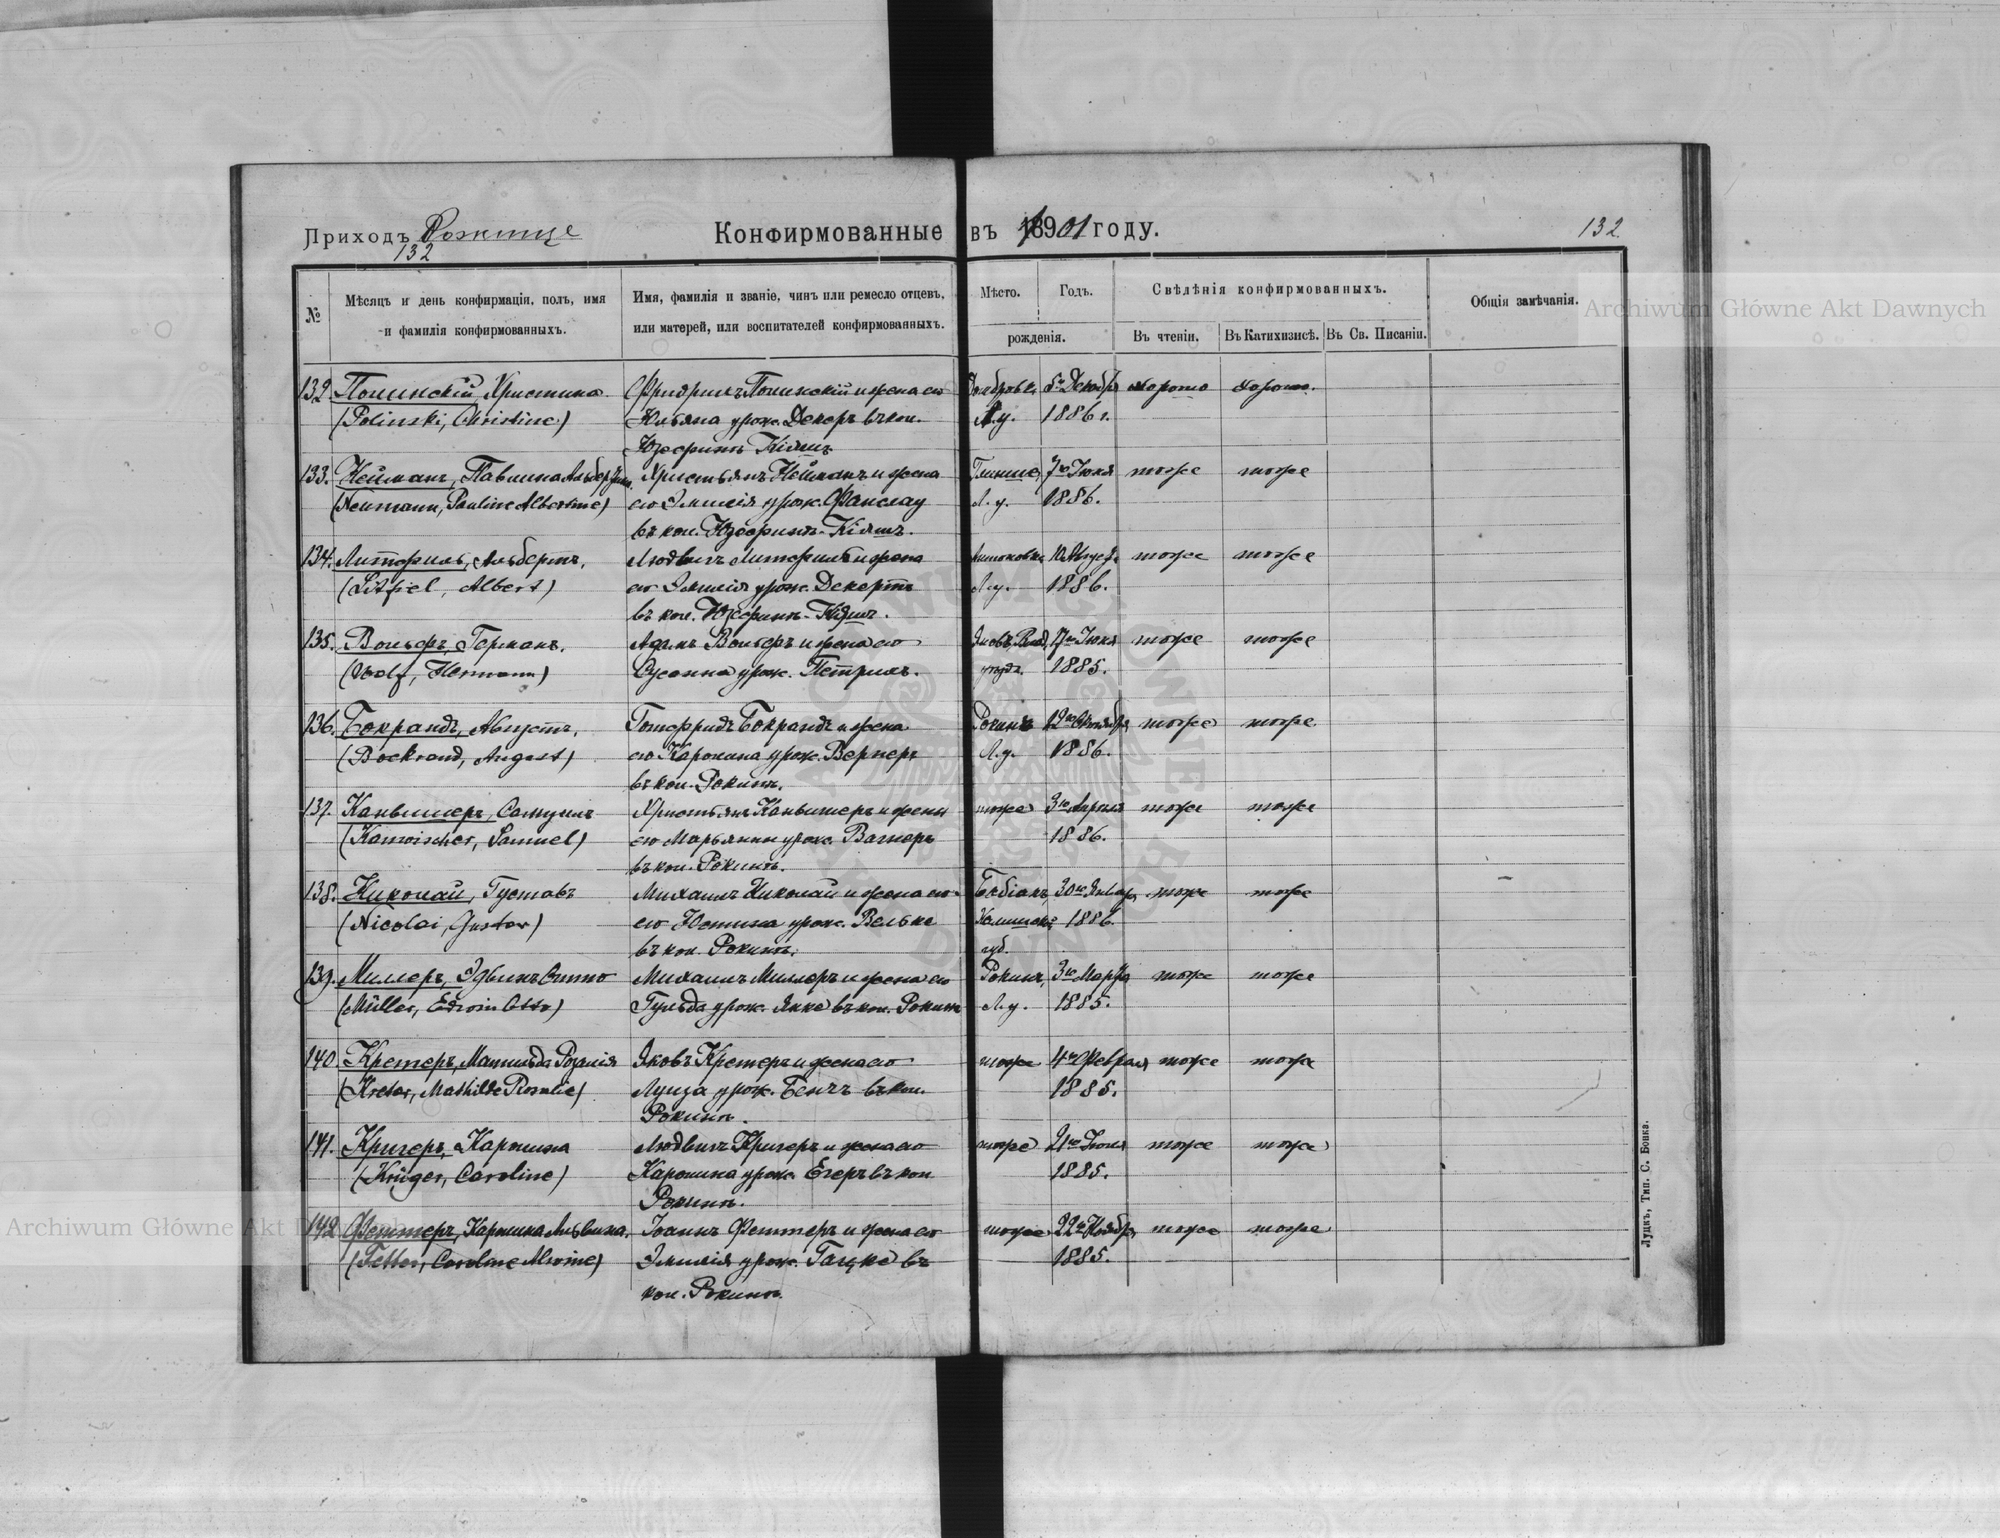 Приходъ Рожище
132
Конфирмованные въ 1901 году.
132
№
Мѣсяцъ и день конфирмаціи, полъ, имя
и фамилія конфирмованныхъ.
Имя, фамилія и званіе, чинъ или ремесло отцевъ,
или матерей, или воспитателей конфирмованныхъ.
Мѣсто. Годъ.
рожденія.
Свѣдѣнія конфирмованныхъ.
Въ чтеніи. Въ Катихизисѣ. Въ Св. Писаніи.
Общія замѣчанія.
132 Полинскій, Христина Фридрихъ Полинскій и жена его 5го Декабря хорошо хорошо.
(Polinski, Christine) Юльяна урож. Декеръ въ кол. Л.у. 1886 г.
Юзефинъ
133. Нейманъ, Павлина Альбертина Христьянъ Нейманъ и жена 7го Іюня тоже тоже
(Neumann, Pauline Albertine) его Эмилія урож. Фанслау Л.у. 1886.
въ кол. Юзефинъ
134. Литфиль, Альбертъ, Людвигъ Литфиль и жена Антоновка 10 Августа тоже тоже
(Litfiel, Albert) его Эмилія урож. Декертъ Л.у. 1886.
въ кол. Юзефинъ
135. Вольфъ, Германъ, Адамъ Вольфъ и жена его 17го Іюня тоже тоже
(Wolf, Hermann) Сусанна урож. Петрихъ. уѣзда. 1885.
136. Бокрандъ, Августъ, Готфридъ Бокрандъ и жена Рокинъ 12го Октября тоже тоже
(Bockrand, August) его Каролина урож. Вернеръ Л.у. 1886.
въ кол. Рокинъ.
137. Канвишеръ, Самуилъ Христьянъ Канвишеръ и жена тоже 3го Апрѣля тоже тоже
(Kanwischer, Samuel) его Марьянна урож. Вагнеръ 1886.
въ кол. Рокинъ.
138. Николай, Густавъ Михаилъ Николай и жена его 30го Января тоже тоже
(Nicolai, Gustav) его Юстина урож. Вельке Калишской 1886.
въ кол. Рокинъ. губ.
139. Миллеръ, Эдвинъ Отто Михаилъ Миллеръ и жена его Рокинъ, 3го Марта тоже тоже
(Müller, Edwin Otto) Гульда урож. Янке въ кол. Рокинъ Л.у. 1885.
140. Кретеръ, Матильда Розалія Яковъ Кретеръ и жена его тоже 4го Февраля тоже тоже
(Kreter, Mathilde Rosalie) Луиза урож. Бенчъ въ кол. 1885.
Рокинъ.
141. Кригеръ, Каролина Людвигъ Кригеръ и жена его тоже 21го Іюля тоже тоже
(Krüger, Caroline) Каролина урож. Егеръ въ кол. 1885.
Рокинъ.
142 Феттеръ, Каролина Альвина. Іоаннъ Феттеръ и жена его тоже 22го Ноября тоже тоже
(Fetter, Caroline Alwine) Эмилія урож. Гацке въ 1885.
кол. Рокинъ.
Луцкъ, Тип. С. Бонка.
Archiwum Główne Akt Dawnych
Archiwum Główne Akt Dawnych